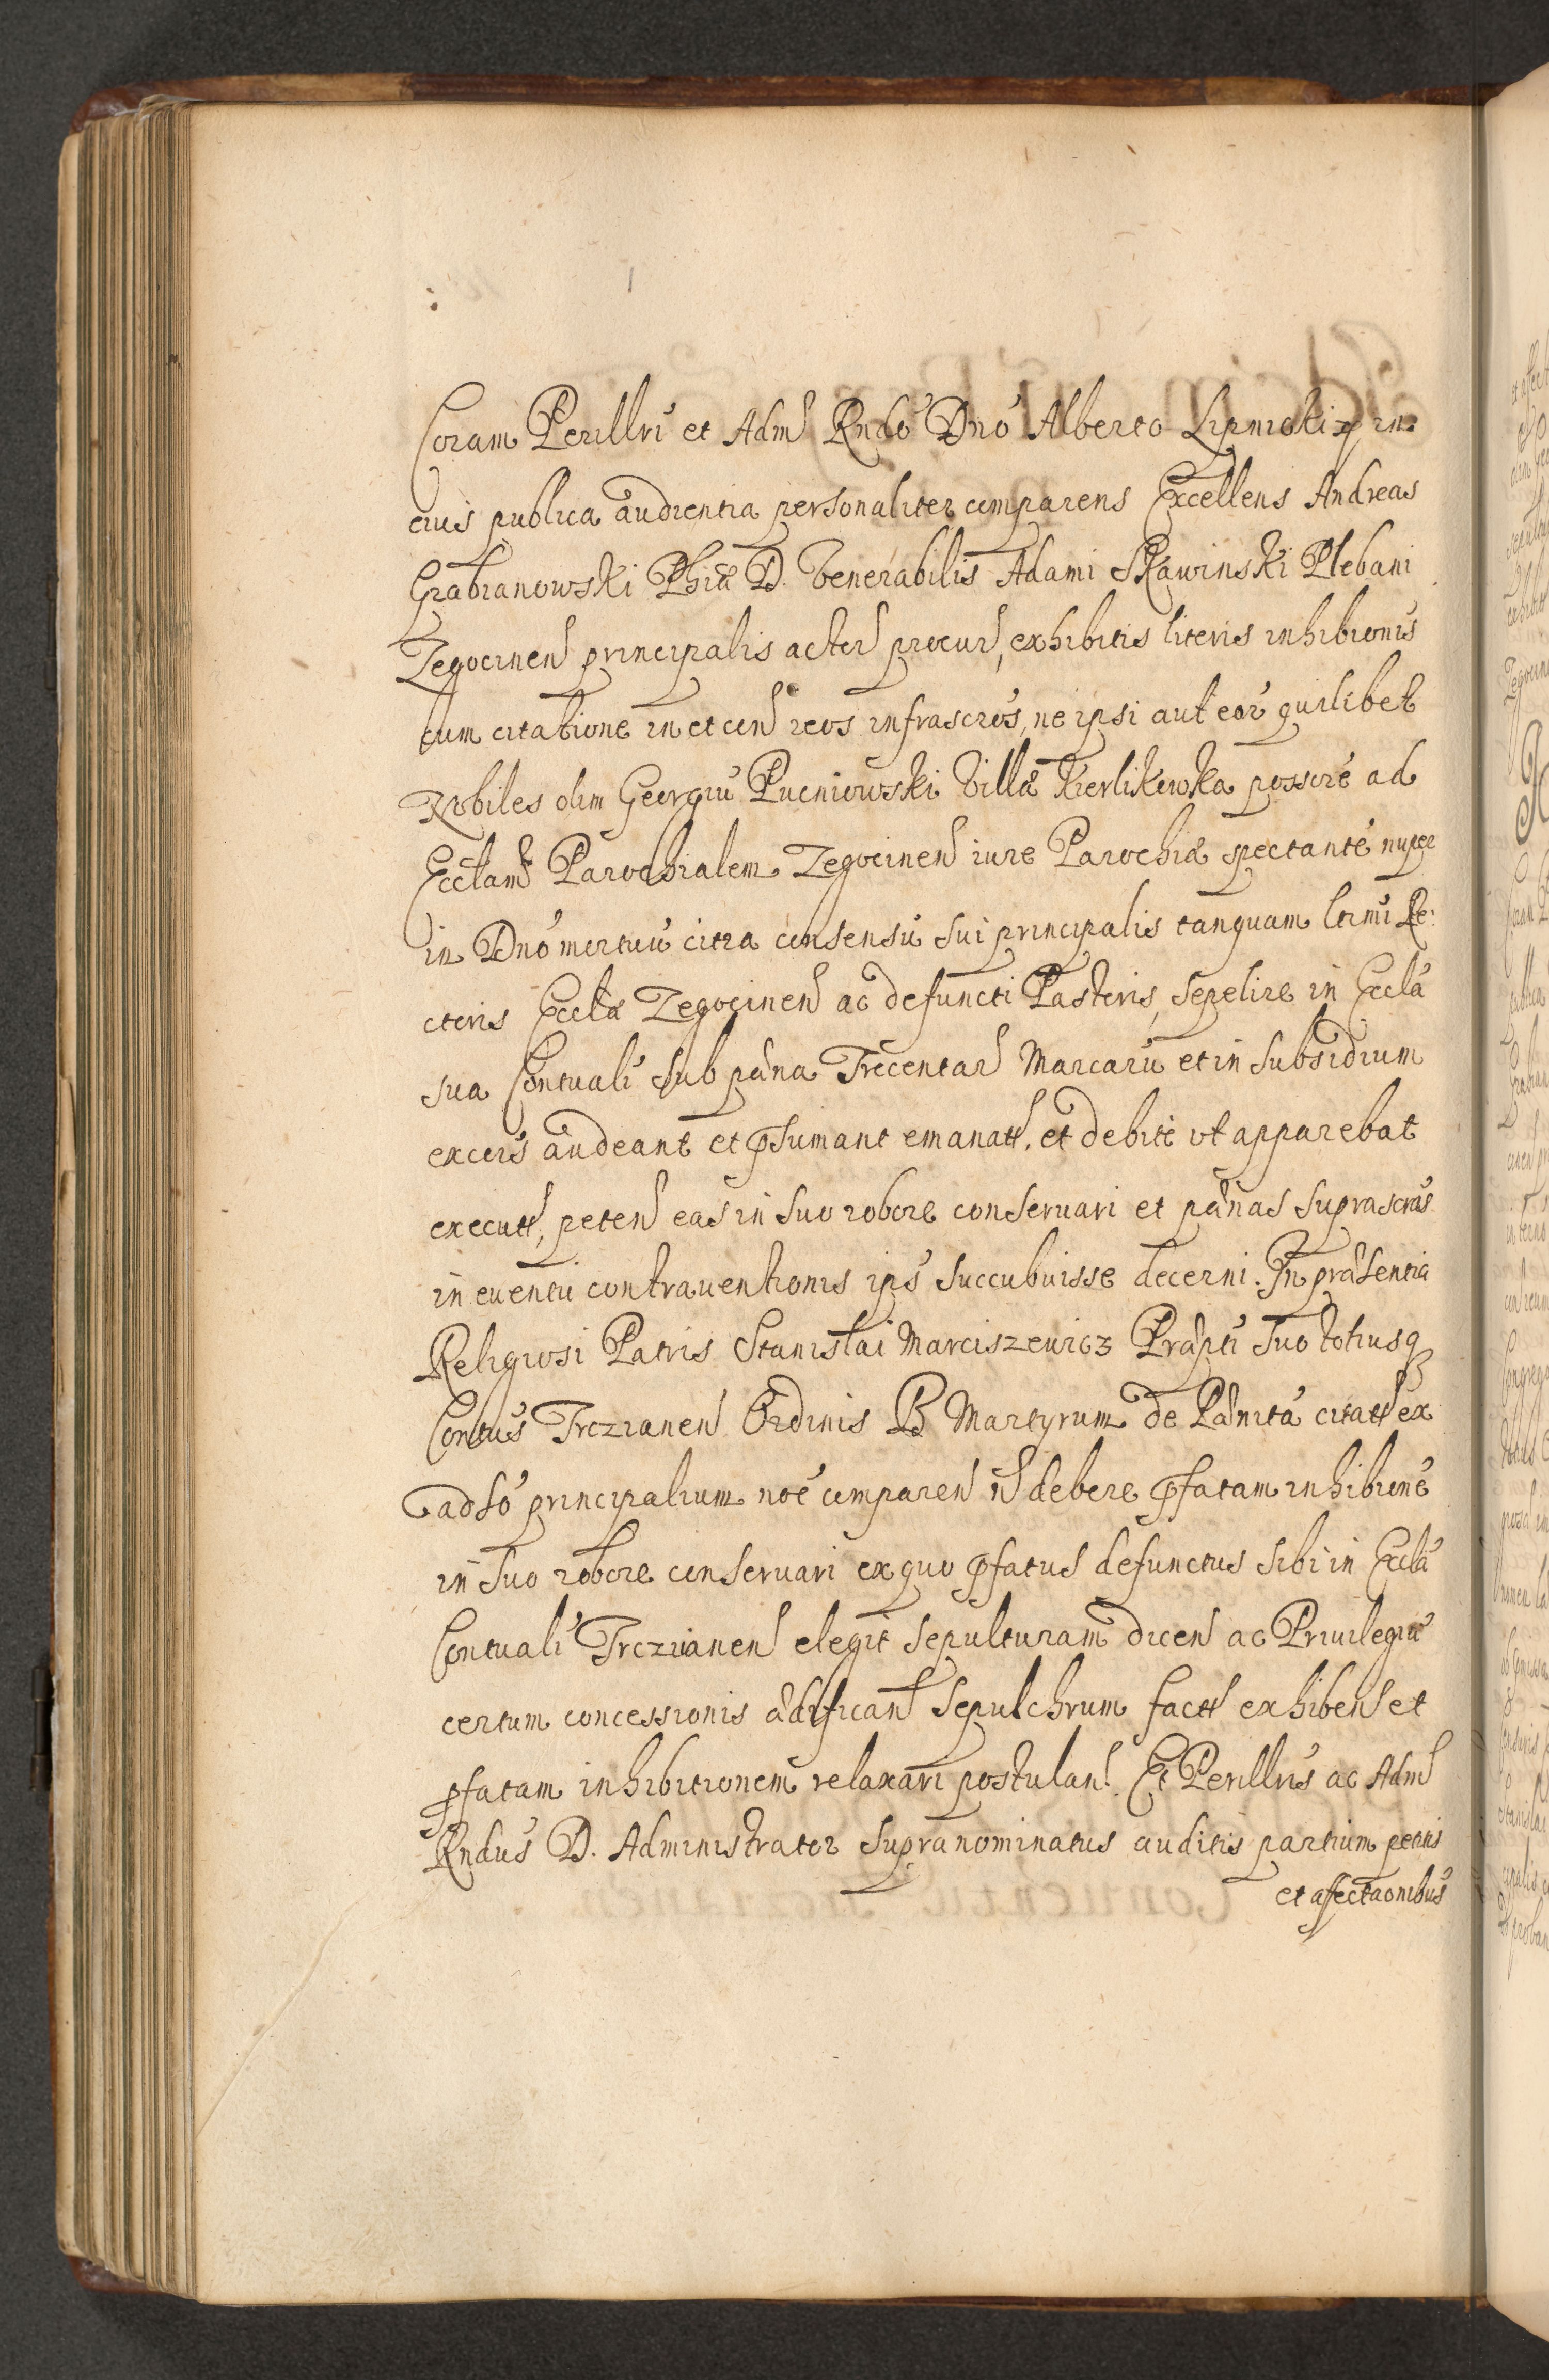 Coram Perillri et Adm Rndo Dno Alberto Lipnicki in
eius publica audientia personaliter comparens Excellens Andreas
Grabianowski Phiæ D. Venerabilis Adami Skawinski Plebani
Zegocinen principalis actor procur, exhibitis literis inhibionis
cum citatione in et con reos infrascros, ne ipsi aut eor quilibet
Nobiles olim Georgiu Pucniowski Villæ Kierlikowka possore ad
Ecclam Parochialem Zegocinen iure Parochiæ spectante nuper
in Dno mortuu citra consensu sui principalis tanquam ltimi Re:
ctoris Ecclæ Zegocinen ac defuncti Pastoris, sepelire in Eccla
sua Contuali sub pæna Trecentar Marcaru et in subsidium
excois audeant et psumant emanatt, et debite ut apparebat
executt, peten eas in suo robore conservari et pænas suprascras
in eventu contraventionis ips succubuisse decerni. In præsentia
Religiosi Patris Stanislai Marciszewicz Præpti suo totiusq
Contus Trczianen Ordinis B Martyrum de Pænita citatt ex
adso principalium noe comparen n debere pfatam inhibione
in suo robore conservari ex quo pfatus defunctus sibi in Eccla
Contuali Trczianen elegit sepulturam dicen ac Privilegiu
certum concessionis ædifican sepulchrum factt exhiben et
pfatam inhibitionem relaxari postulan. Et Perillris ac Adm
Rndus D. Administrator supranominatus auditis partium petitis
et afectaonibus